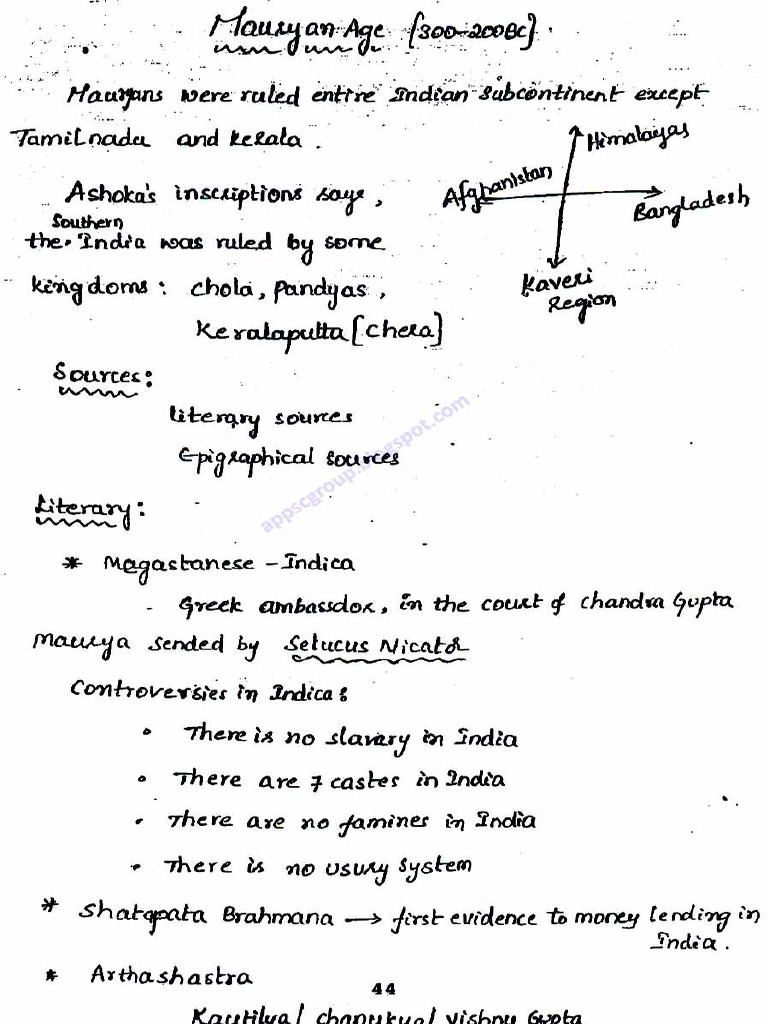 Mauryan Age [300-200BC].
Mauryans were ruled entire Indian subcontinent except
Tamilnadu and Kerala.
Himalayas
Afghanistan
Bangladesh
Kaveri
Region
Ashoka's inscriptions says,
Southern
the India was ruled by some
kingdoms: chola, pandyas,
Keralaputta [Chera]
Sources:
Literary sources
Epigraphical sources
Literary:
* Magastanese - Indica
- Greek ambassdor, in the court of chandra Gupta
Maurya sended by Selucus Nicator
Controversies in Indica:
• There is no slavary in India
• There are 7 castes in India
• There are no famines in India
• There is no usury system
* Shatapata Brahmana → first evidence to money lending in
India.
* Arthashastra
44
Kautilya/ chanukya/ Vishnu Gupta
appscgroup.blogspot.com